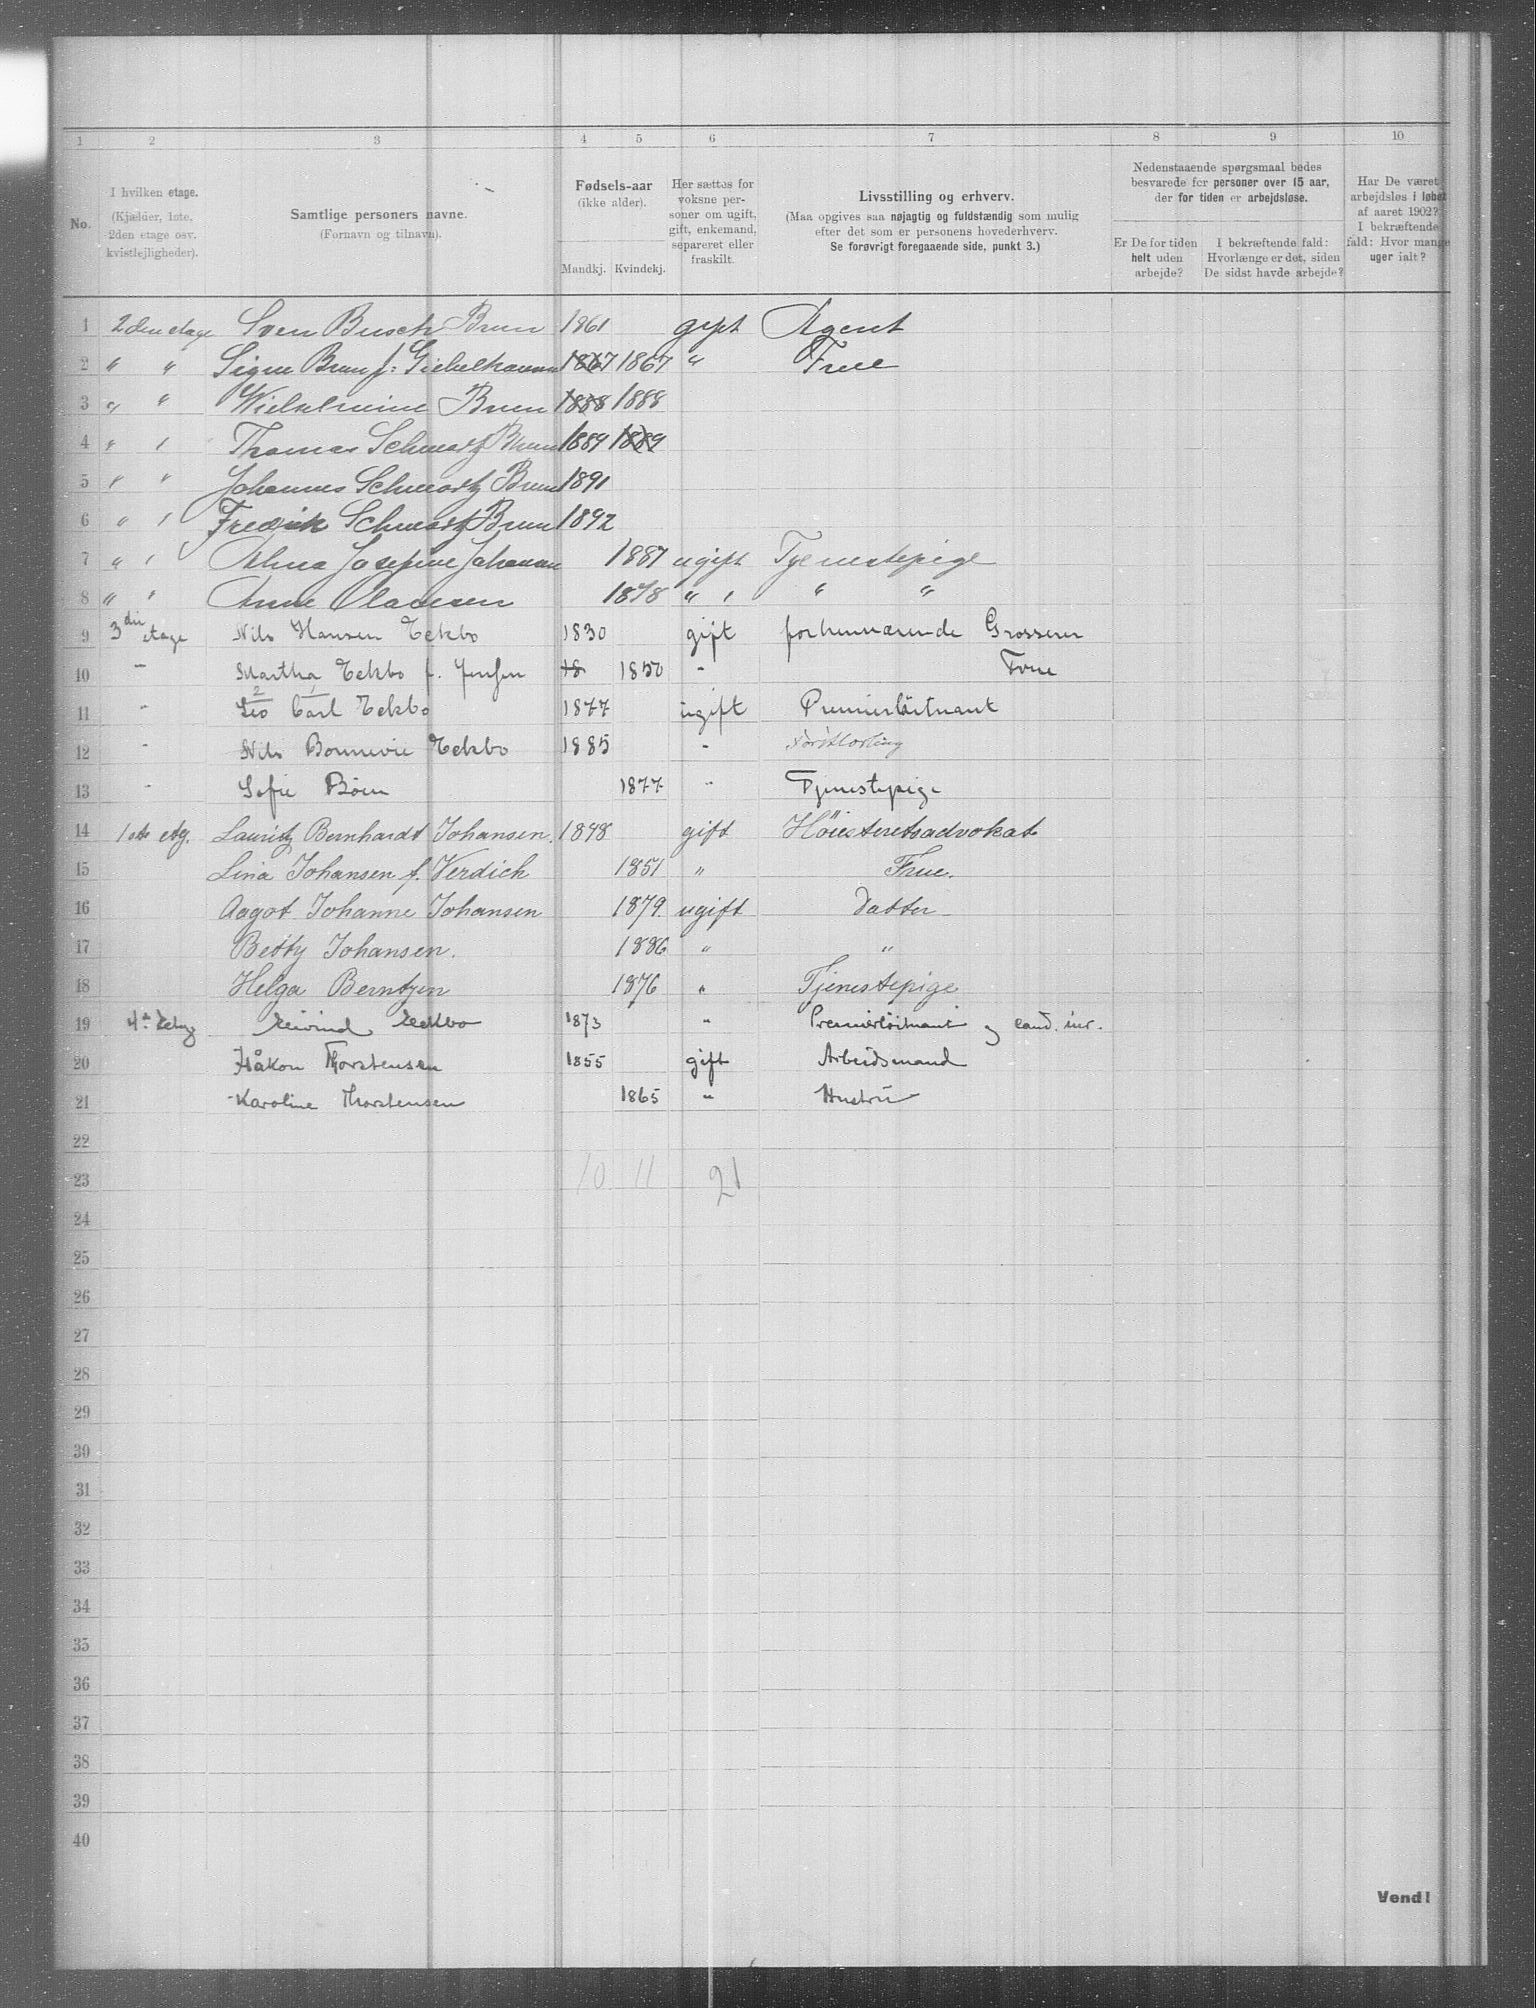 1 2 3 4 5 6 7 8 9 10
No.
I hvilken etage.
(Kjælder, 1ste.
2den etage osv.
kvistlejligheder).
Samtlige personers navne.
(Fornavn og tilnavn).
Fødsels-aar
(ikke alder).
Mandkj. Kvindekj.
Her sættes for
voksne per-
soner om ugift,
gift, enkemand,
separeret eller
fraskilt.
Livsstilling og erhverv.
(Maa opgives saa nøjagtig og fuldstændig som mulig
efter det som er personens hovederhverv.
Se forøvrigt foregaaende side, punkt 3.)
Nedenstaaende spørgsmaal bedes
besvarede for personer over 15 aar,
der for tiden er arbejdsløse.
Er De for tiden
helt uden
arbejde?
I bekræftende fald:
Hvorlænge er det, siden
De sidst havde arbejde?
Har De været
arbejdsløs i løbet
af aaret 1902?
I bekræftende
fald: Hvor mange
uger ialt?
1 2den etage Sven Busch Brun 1861 gift Agent
2 " " Signe Brun f: Giebelhausen 1867 1867 " Frue
3 " " Wilhelmine Brun 1888 1888
4 " " Thomas Schwartz Brun 1889 1889
5 " " Johannes Schwartz Brun 1891
6 " " Fredrik Schwartz Brun 1892
7 " " Alma Josefine Johansen 1887 ugift Tjenestepige
8 " " Anne Olaussen 1878 " " " "
9 3die etage Nils Hansen Eckbo 1830 gift forhenværende Grosserer
10 " Martha Eckbo f. Jensen 18 1850 " Frue
11 " Leo Carl Eckbo 1877 ugift Premierløitnant
12 " Nils Bonnevie Eckbo 1885 "
13 " Sofie Böen 1877 " Tjenestepige
14 1ste etg. Lauritz Bernhardt Johansen. 1848 gift Höiesteretsadvokat
15 Lina Johansen f. Verdich 1851 " Frue.
16 Aagot Johanne Johansen 1879. ugift Datter
17 Betty Johansen. 1886 " "
18 Helga Berntzen 1876 " Tjenestepige
19 4de Etag Eivind Eckbo 1873 " Premierløitnant og cand. jur.
20 Håkon Thorstensen 1855 gift Arbeidsmand
21 Karoline Thorstensen 1865 " Hustru
22
23 10 11 21
24
25
26
27
28
29
30
31
32
33
34
35
36
37
38
39
40
Vend!